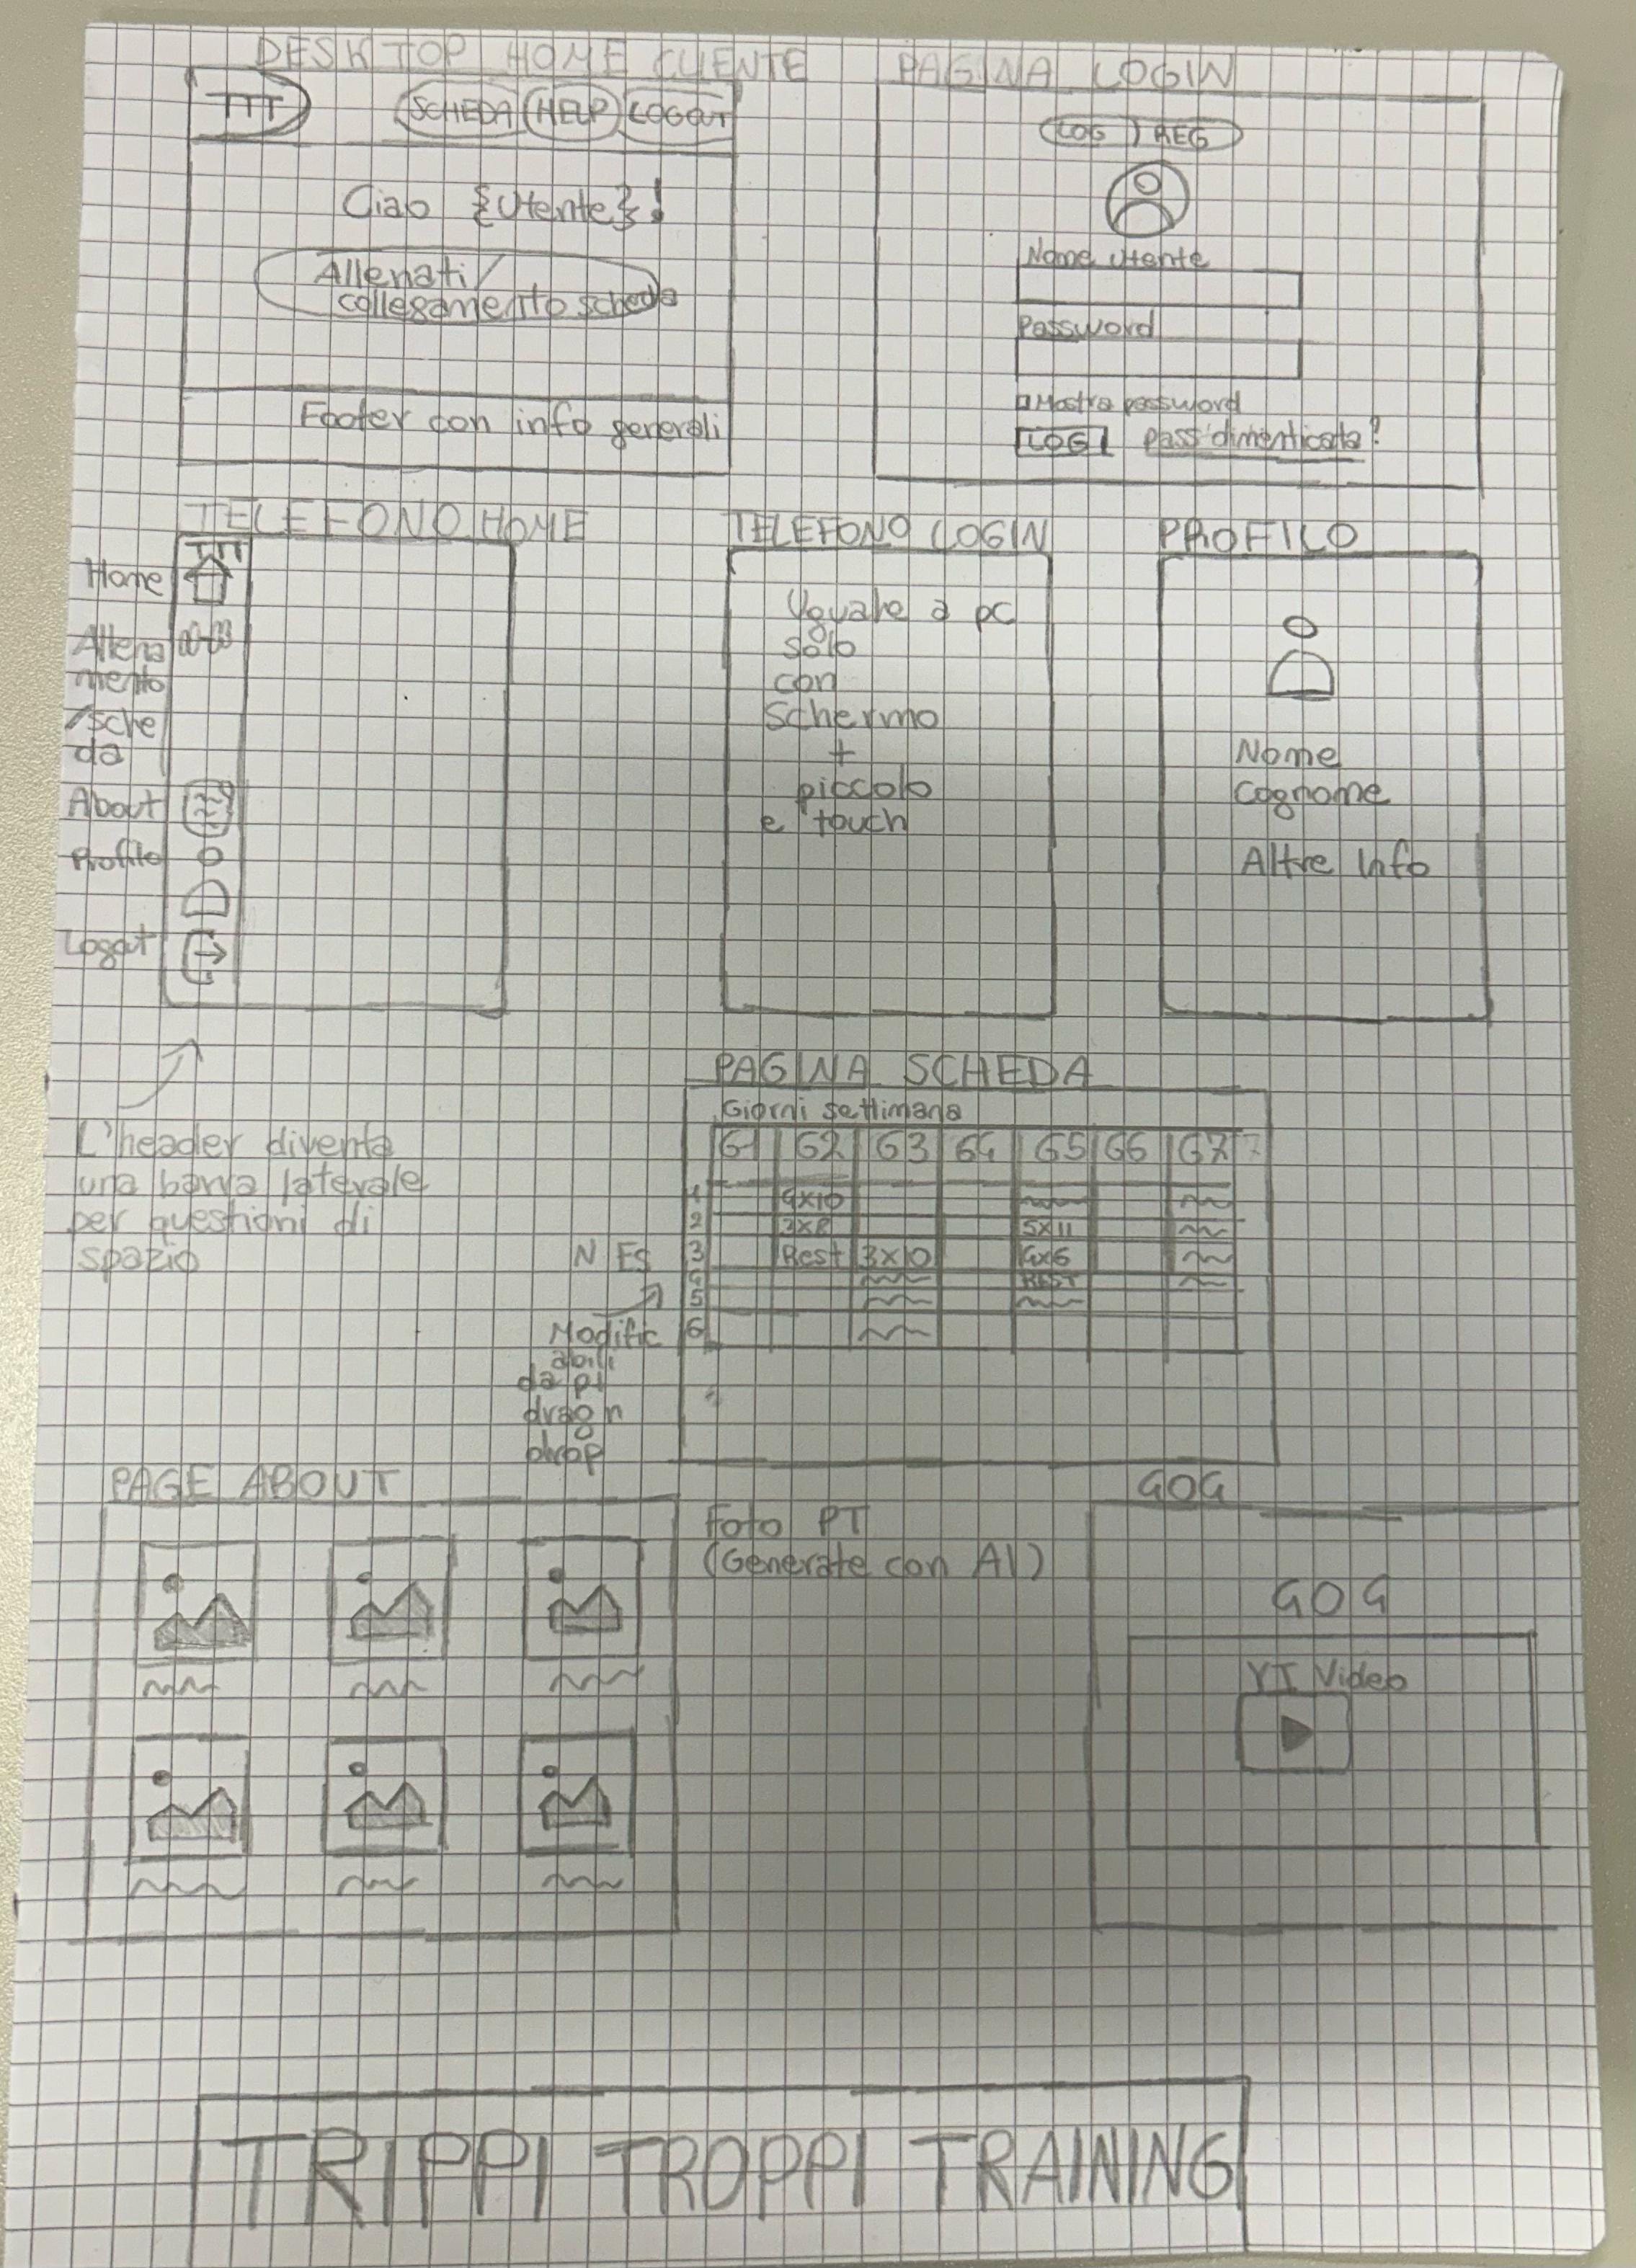 DESKTOP HOME CLIENTE
PAGINA LOGIN
TTT
SCHEDA HELP LOGOUT
Ciao {Utente}!
Allenati/
collegamento scheda
Footer con info generali
LOG REG
Nome utente
Password
Mostra password
LOG pass dimenticata?
TELEFONO HOME
TTT
Home
Allena
mento
/sche
da
About
Profilo
Logout
L'header diventa
una barra laterale
per questioni di
spazio
TELEFONO LOGIN
Uguale a pc
solo
con
schermo
+
piccolo
e touch
PROFILO
Nome
Cognome
Altre Info
PAGINA SCHEDA
Giorni settimana
G1 G2 G3 G4 G5 G6 G7
1 4x10
2 3x8 5x11
N ES 3 Rest 3x10 4x6
4 REST
5
6
Modific
abili
da pt
drag n
drop
PAGE ABOUT
Foto PT
(Generate con AI)
GOG
GOG
YT Video
TRIPPI TROPPI TRAINING